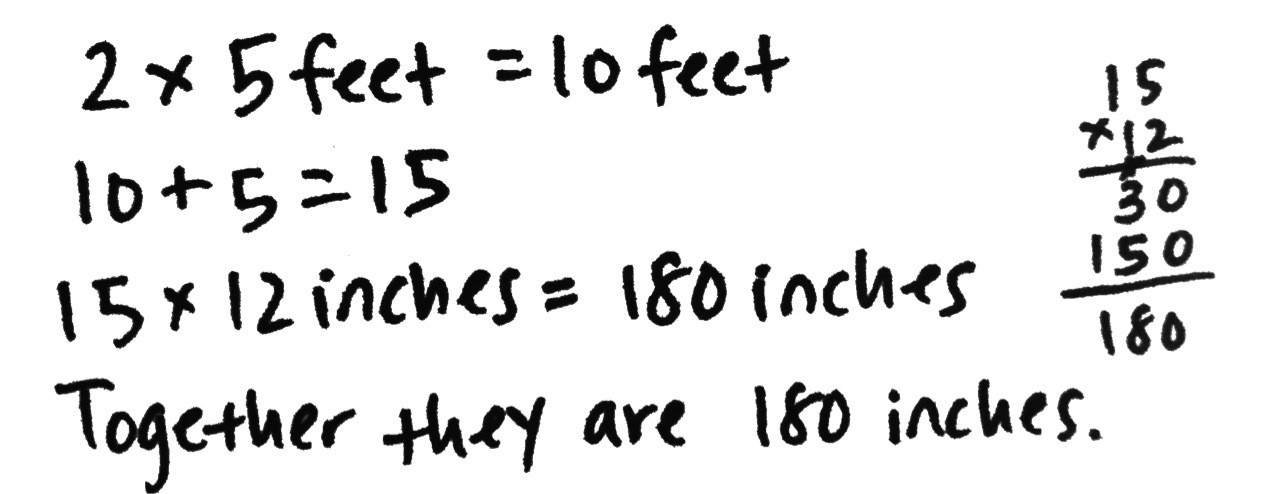 2 × 5 feet = 10 feet
10 + 5 = 15
15 × 12 inches = 180 inches
Together they are 180 inches.
15
×12
30
150
180